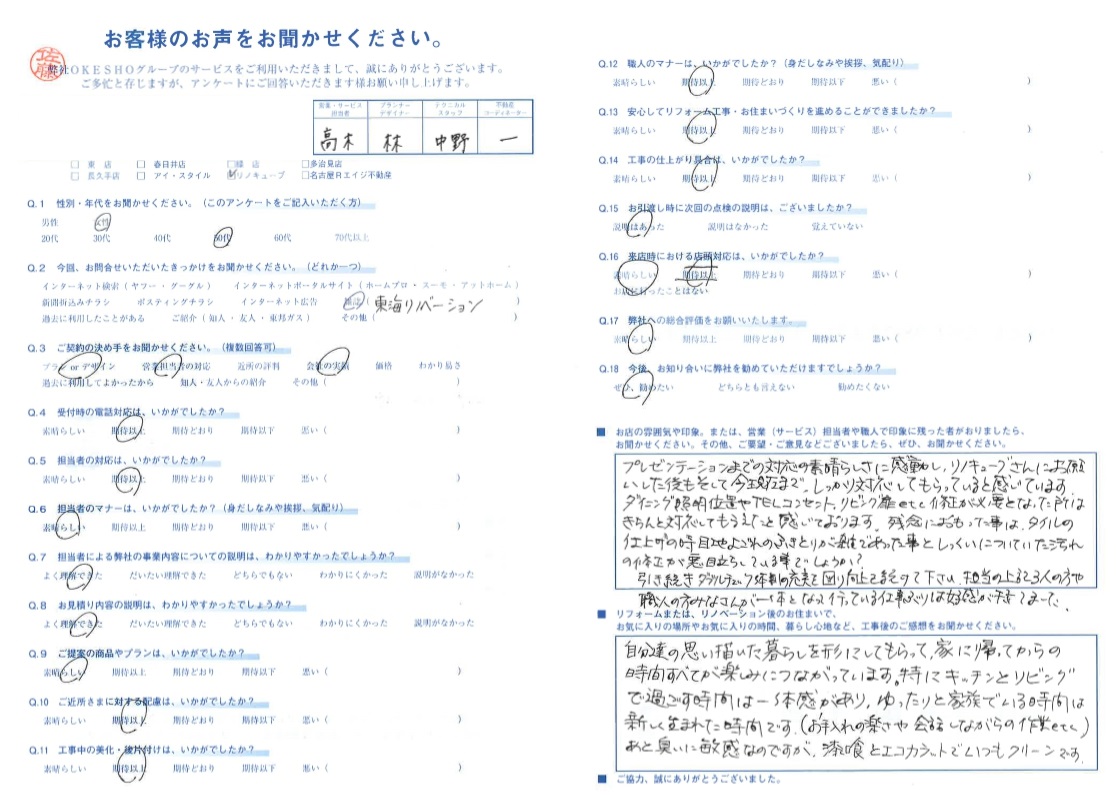 お客様のお声をお聞かせください。
佐藤
弊社OKESHOグループのサービスをご利用いただきまして、誠にありがとうございます。
ご多忙と存じますが、アンケートにご回答いただきます様お願い申し上げます。
営業・サービス担当者 プランナーデザイナー テクニカルスタッフ 不動産コーディネーター
高木 林 中野 ー
□ 東 店 □ 春日井店 □緑 店 □多治見店
□ 長久手店 □ アイ・スタイル □リノキューブ □名古屋Rエイジ不動産
Q.1 性別・年代をお聞かせください。（このアンケートをご記入いただく方）
男性 女性
20代 30代 40代 50代 60代 70代以上
Q.2 今回、お問合せいただいたきっかけをお聞かせください。（どれか一つ）
インターネット検索（ヤフー・グーグル） インターネットポータルサイト（ホームプロ・スーモ・アットホーム）
新聞折込みチラシ ポスティングチラシ インターネット広告 雑誌（東海リノベーション ）
過去に利用したことがある ご紹介（知人・友人・東邦ガス） その他（ ）
Q.3 ご契約の決め手をお聞かせください。（複数回答可）
プラン or デザイン 営業担当者の対応 近所の評判 会社の実績 価格 わかり易さ
過去に利用してよかったから 知人・友人からの紹介 その他（ ）
Q.4 受付時の電話対応は、いかがでしたか？
素晴らしい 期待以上 期待どおり 期待以下 悪い（ ）
Q.5 担当者の対応は、いかがでしたか？
素晴らしい 期待以上 期待どおり 期待以下 悪い（ ）
Q.6 担当者のマナーは、いかがでしたか？（身だしなみや挨拶、気配り）
素晴らしい 期待以上 期待どおり 期待以下 悪い（ ）
Q.7 担当者による弊社の事業内容についての説明は、わかりやすかったでしょうか？
よく理解できた だいたい理解できた どちらでもない わかりにくかった 説明がなかった
Q.8 お見積り内容の説明は、わかりやすかったでしょうか？
よく理解できた だいたい理解できた どちらでもない わかりにくかった 説明がなかった
Q.9 ご提案の商品やプランは、いかがでしたか？
素晴らしい 期待以上 期待どおり 期待以下 悪い（ ）
Q.10 ご近所さまに対する配慮は、いかがでしたか？
素晴らしい 期待以上 期待どおり 期待以下 悪い（ ）
Q.11 工事中の美化・後片付けは、いかがでしたか？
素晴らしい 期待以上 期待どおり 期待以下 悪い（ ）
Q.12 職人のマナーは、いかがでしたか？（身だしなみや挨拶、気配り）
素晴らしい 期待以上 期待どおり 期待以下 悪い（ ）
Q.13 安心してリフォーム工事・お住まいづくりを進めることができましたか？
素晴らしい 期待以上 期待どおり 期待以下 悪い（ ）
Q.14 工事の仕上がり具合は、いかがでしたか？
素晴らしい 期待以上 期待どおり 期待以下 悪い（ ）
Q.15 お引渡し時に次回の点検の説明は、ございましたか？
説明はあった 説明はなかった 覚えていない
Q.16 来店時における店頭対応は、いかがでしたか？
素晴らしい 期待以上 期待どおり 期待以下 悪い（ ）
お店に行ったことはない
Q.17 弊社への総合評価をお願いいたします。
素晴らしい 期待以上 期待どおり 期待以下 悪い（ ）
Q.18 今後、お知り合いに弊社を勧めていただけますでしょうか？
ぜひ、勧めたい どちらとも言えない 勧めたくない
■ お店の雰囲気や印象。または、営業（サービス）担当者や職人で印象に残った者がおりましたら、
お聞かせください。その他、ご要望・ご意見などございましたら、ぜひ、お聞かせください。
プレゼンテーションまでの対応の素晴らしさに感動し、リノキューブさんにお願
いした後もそして今現在まで、しっかり対応してもらっていると感じています
ダイニング照明位置やTELコンセント、リビング扉etc 修正が必要となった所は
きちんと対応してもらえたと感じております。残念におもった事は、タイルの
仕上げの時目地よごれのふきとりが雑であった事としっくいについていた汚れ
の修正が悪目立ちしている事でしょうか？
引き続きダブルチェック体制の充実を図り向上させて下さい。担当の上記3人の方や
職人の方みなさんが一体となって行っている仕事ぶりは好感がもてました。
■ リフォームまたは、リノベーション後のお住まいで、
お気に入りの場所やお気に入りの時間、暮らし心地など、工事後のご感想をお聞かせください。
自分達の思い描いた暮らしを形にしてもらって、家に帰ってからの
時間すべてが楽しみにつながっています。特にキッチンとリビング
で過ごす時間は一体感があり、ゆったりと家族でいる時間は
新しく生まれた時間です。（お手入れの楽さや会話しながらの作業etc）
あと臭いに敏感なのですが、漆喰とエコカラットでいつもクリーンです。
■ ご協力、誠にありがとうございました。